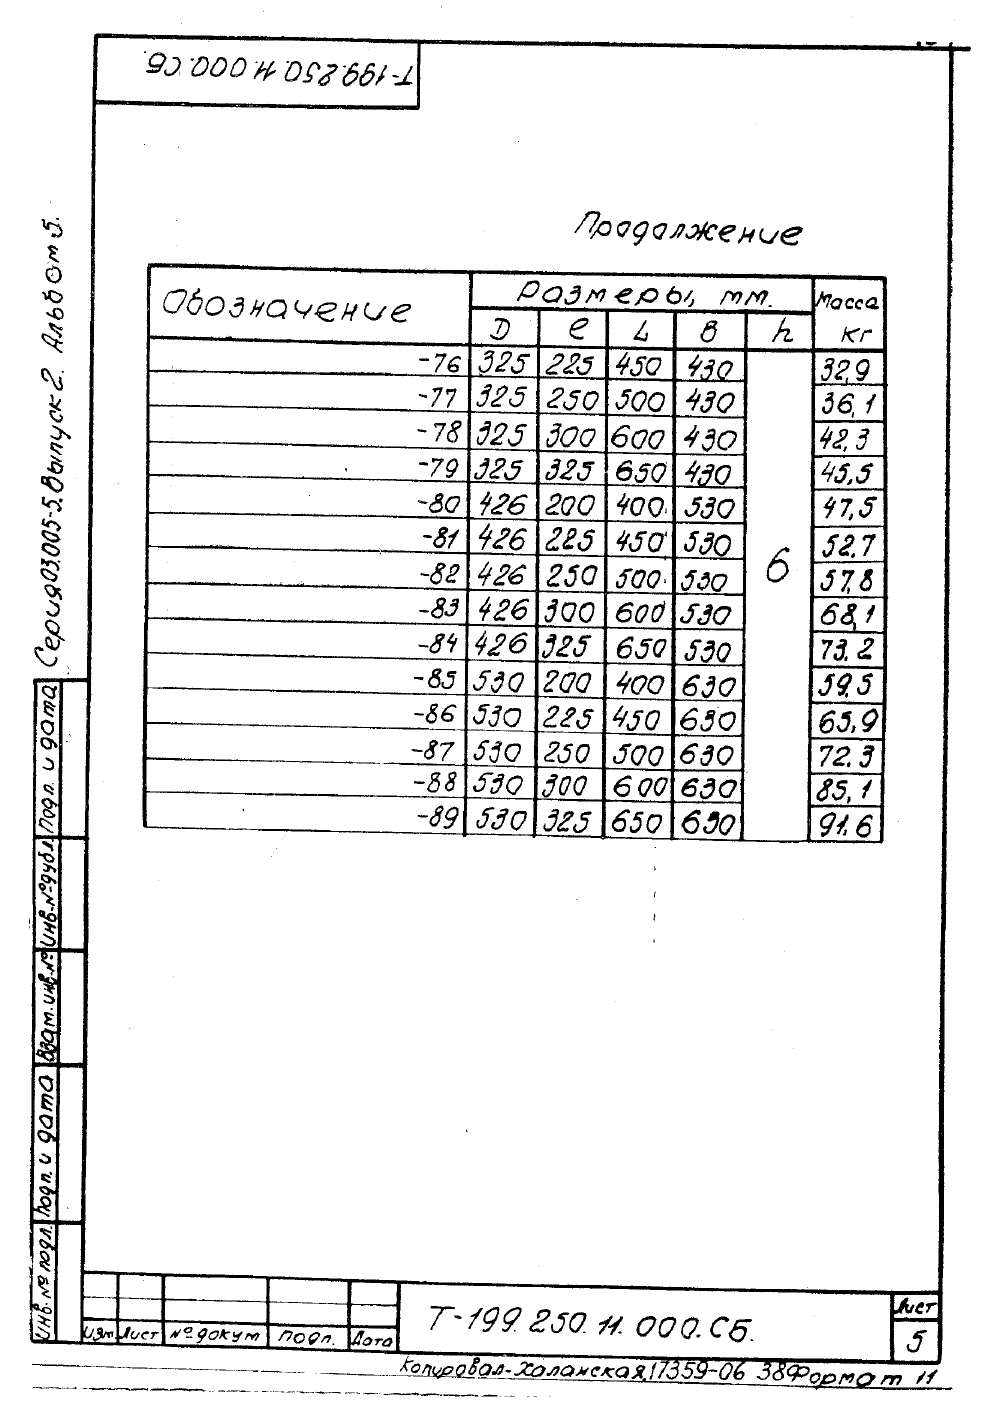 Т-199.250.11.000.СБ.
Продолжение
Обозначение Размеры, мм. Масса кг
D ℓ L B h
-76 325 225 450 430 32,9
-77 325 250 500 430 36,1
-78 325 300 600 430 42,3
-79 325 325 650 430 45,5
-80 426 200 400 530 47,5
-81 426 225 450 530 52.7
6
-82 426 250 500 530 57,8
-83 426 300 600 530 68,1
-84 426 325 650 530 73.2
-85 530 200 400 630 59.5
-86 530 225 450 630 65,9
-87 530 250 500 630 72.3
-88 530 300 600 630 85,1
-89 530 325 650 630 91.6
Серия 03.005-5. Выпуск-2. Альбом 5.
Подп. и дата
Инв.№дубл.
Взам.инв.№
Подп. и дата
Инв.№ подл.
Изм Лист №докум Подп. Дата
Т-199.250.11.000.СБ.
Лист
5
Копировал-Халанская 17359-06 38 Формат 11